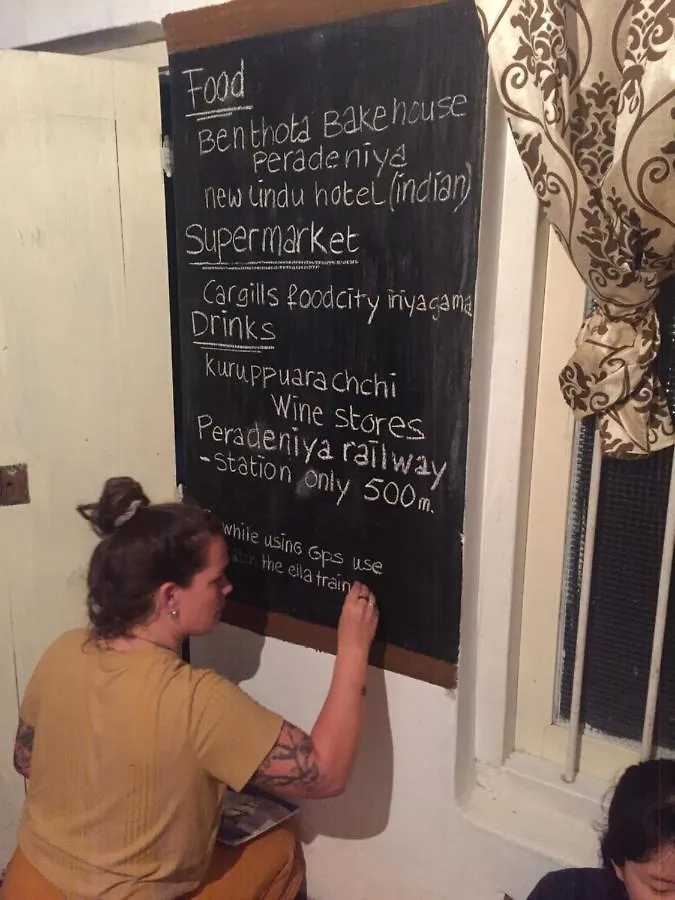 Food
Benthota Bakehouse
Peradeniya
new Lindu hotel (indian)
Supermarket
Cargills foodcity iriyagama
Drinks
kuruppuarachchi
Wine stores
Peradeniya railway
-station only 500m.
while using GPS use
the ella train